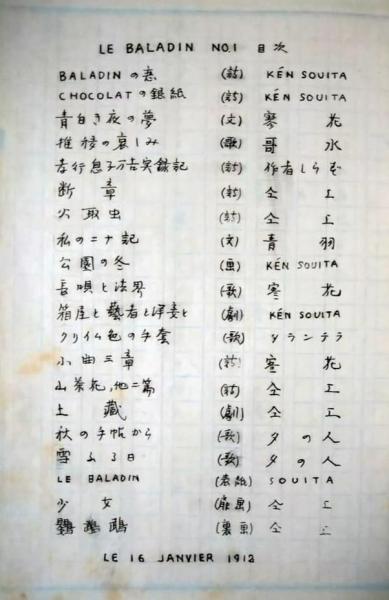 LE BALADIN NO.1 目次
BALADIN の恋 (詩) KÉN SOUITA
CHOCOLAT の銀紙 (詩) KÉN SOUITA
青白き夜の夢 (文) 寒花
推移の哀しみ (歌) 哥水
孝行息子万吉実録記 (詩) 作者しらず
断章 (詩) 仝上
火取虫 (詩) 仝上
私のニナ記 (文) 青羽
公園の冬 (画) KÉN SOUITA
長唄と法界 (歌) 寒花
箱屋と藝者と洋妾と (劇) KÉN SOUITA
クリイム色の手套 (歌) タランテラ
小曲三章 (詩) 寒花
山茶花、他二篇 (詩) 仝上
土藏 (劇) 仝上
秋の手帖から (歌) 夕の人
雪ふる日 (歌) 夕の人
LE BALADIN (表紙) SOUITA
少女 (扉画) 仝上
(裏画) 仝上
LE 16 JANVIER 1912